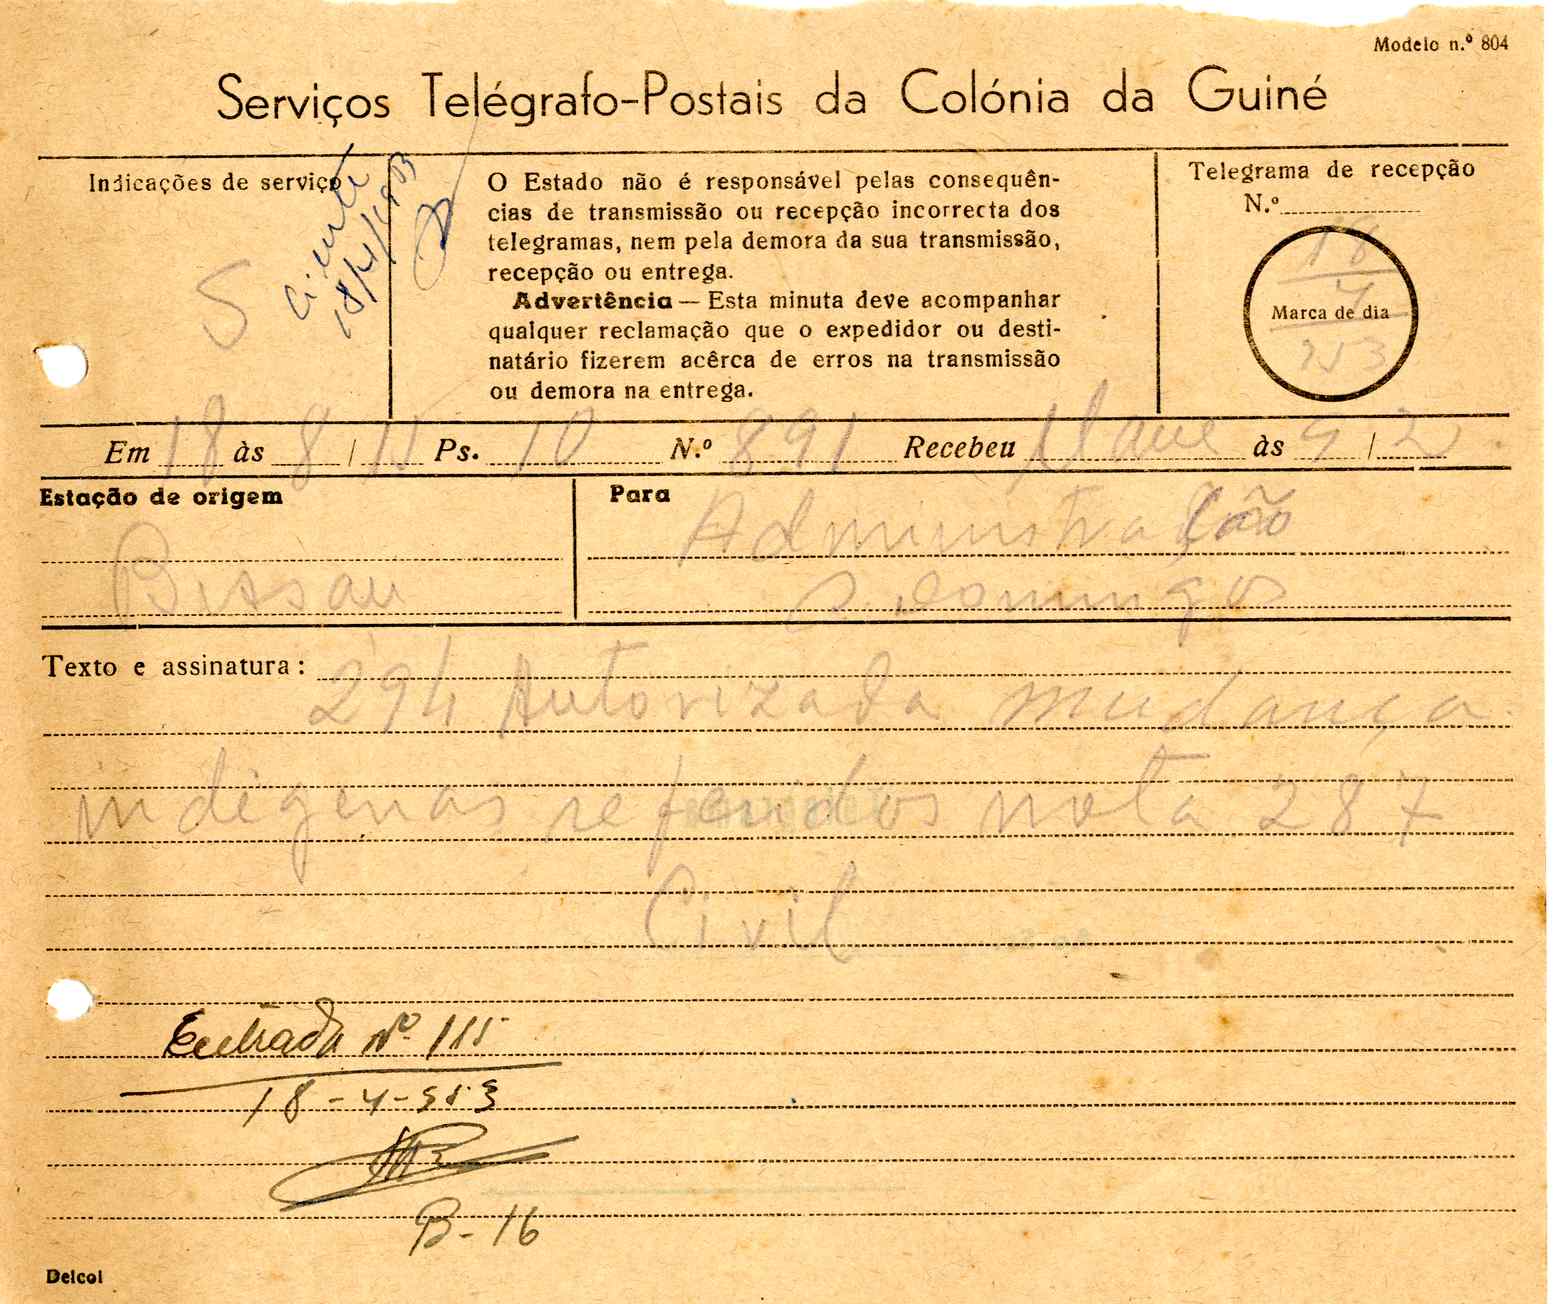 Modelo n.º 804
Serviços Telégrafo-Postais da Colónia da Guiné
Indicações de serviço
S
Ciente
18/4/953
O Estado não é responsável pelas consequên-
cias de transmissão ou recepção incorrecta dos
telegramas, nem pela demora da sua transmissão,
recepção ou entrega.
Advertência — Esta minuta deve acompanhar
qualquer reclamação que o expedidor ou desti-
natário fizerem acêrca de erros na transmissão
ou demora na entrega.
Telegrama de recepção
N.º
18
4
Marca de dia
953
Em 18 às 8 / 15 Ps. 10 N.º 891 Recebeu às 9 / 2
Estação de origem
Bissau
Para
Administração
S. Domingos
Texto e assinatura:
294 Autorizada mudança
indigenas referidos nota 287
Civil
Entrada Nº 115
18-4-953
B-16
Delcol